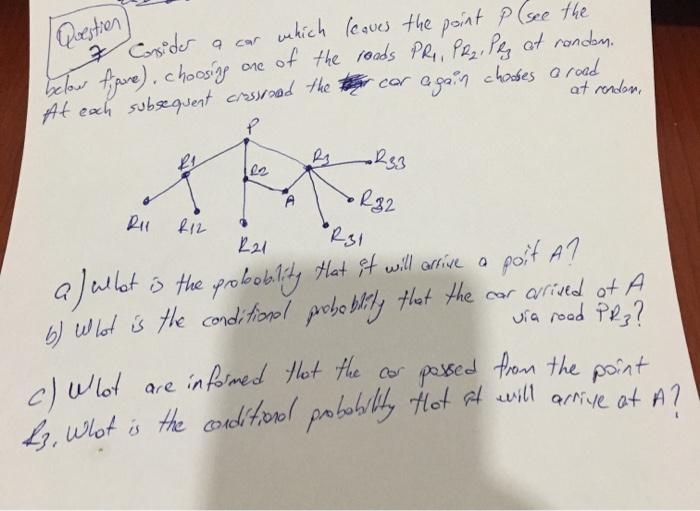 Question
7 Consider a car which leaves the point P (see the
below figure), choosing one of the roads PR1, PR2, PR3 at random.
At each subsequent crossroad the car again chooses a road
at random.
P
R1
R2
R3
R33
A
R32
R11
R12
R21
R31
a) What is the probability that it will arrive a poit A?
b) What is the conditional probability that the car arrived at A
via road PR3?
c) What are informed that the car passed from the point
R3. What is the conditional probability that it will arrive at A?